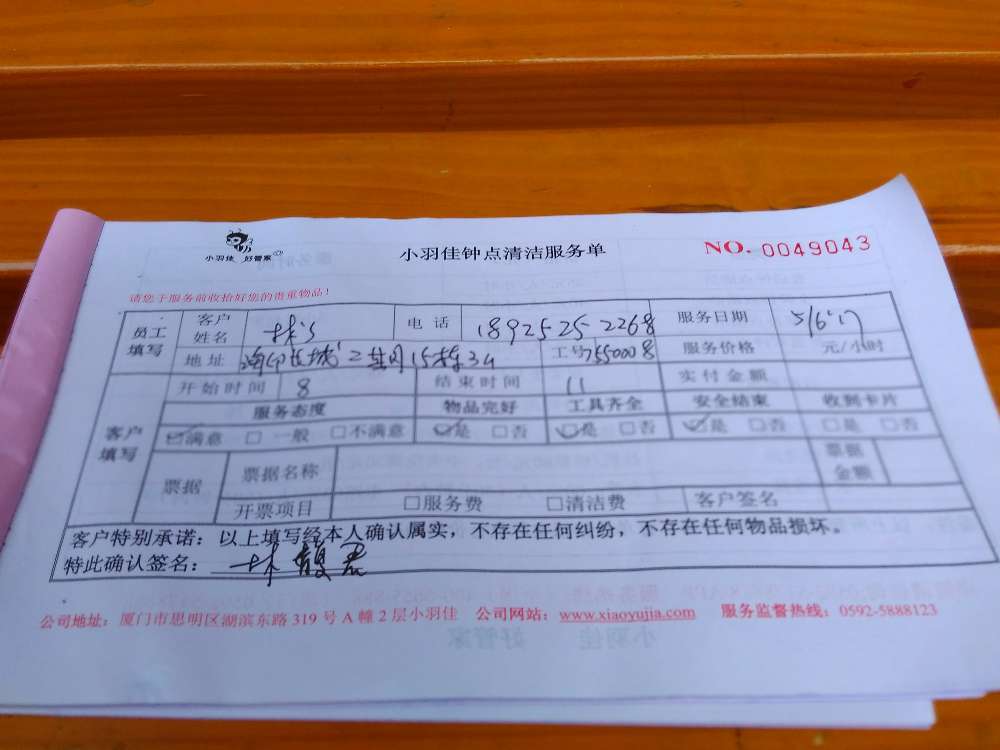 小羽佳 好管家
小羽佳钟点清洁服务单
NO. 0049043
请您于服务前收拾好您的贵重物品!
员工填写 客户姓名 林 电话 18925252268 服务日期 5/6'17
地址 15栋34 工号 7550008 服务价格 元/小时
客户填写 开始时间 8 结束时间 11 实付金额
服务态度 物品完好 工具齐全 安全结束 收到卡片
☑满意 □ 一般 □不满意 ☑是 □否 ☑是 □否 ☑是 □否 □是 □否
票据 票据名称 票据金额
开票项目 □服务费 □清洁费 客户签名
客户特别承诺：以上填写经本人确认属实，不存在任何纠纷，不存在任何物品损坏。
特此确认签名： 林
公司地址：厦门市思明区湖滨东路 319 号 A 幢 2 层小羽佳 公司网站：www.xiaoyujia.com 服务监督热线：0592-5888123